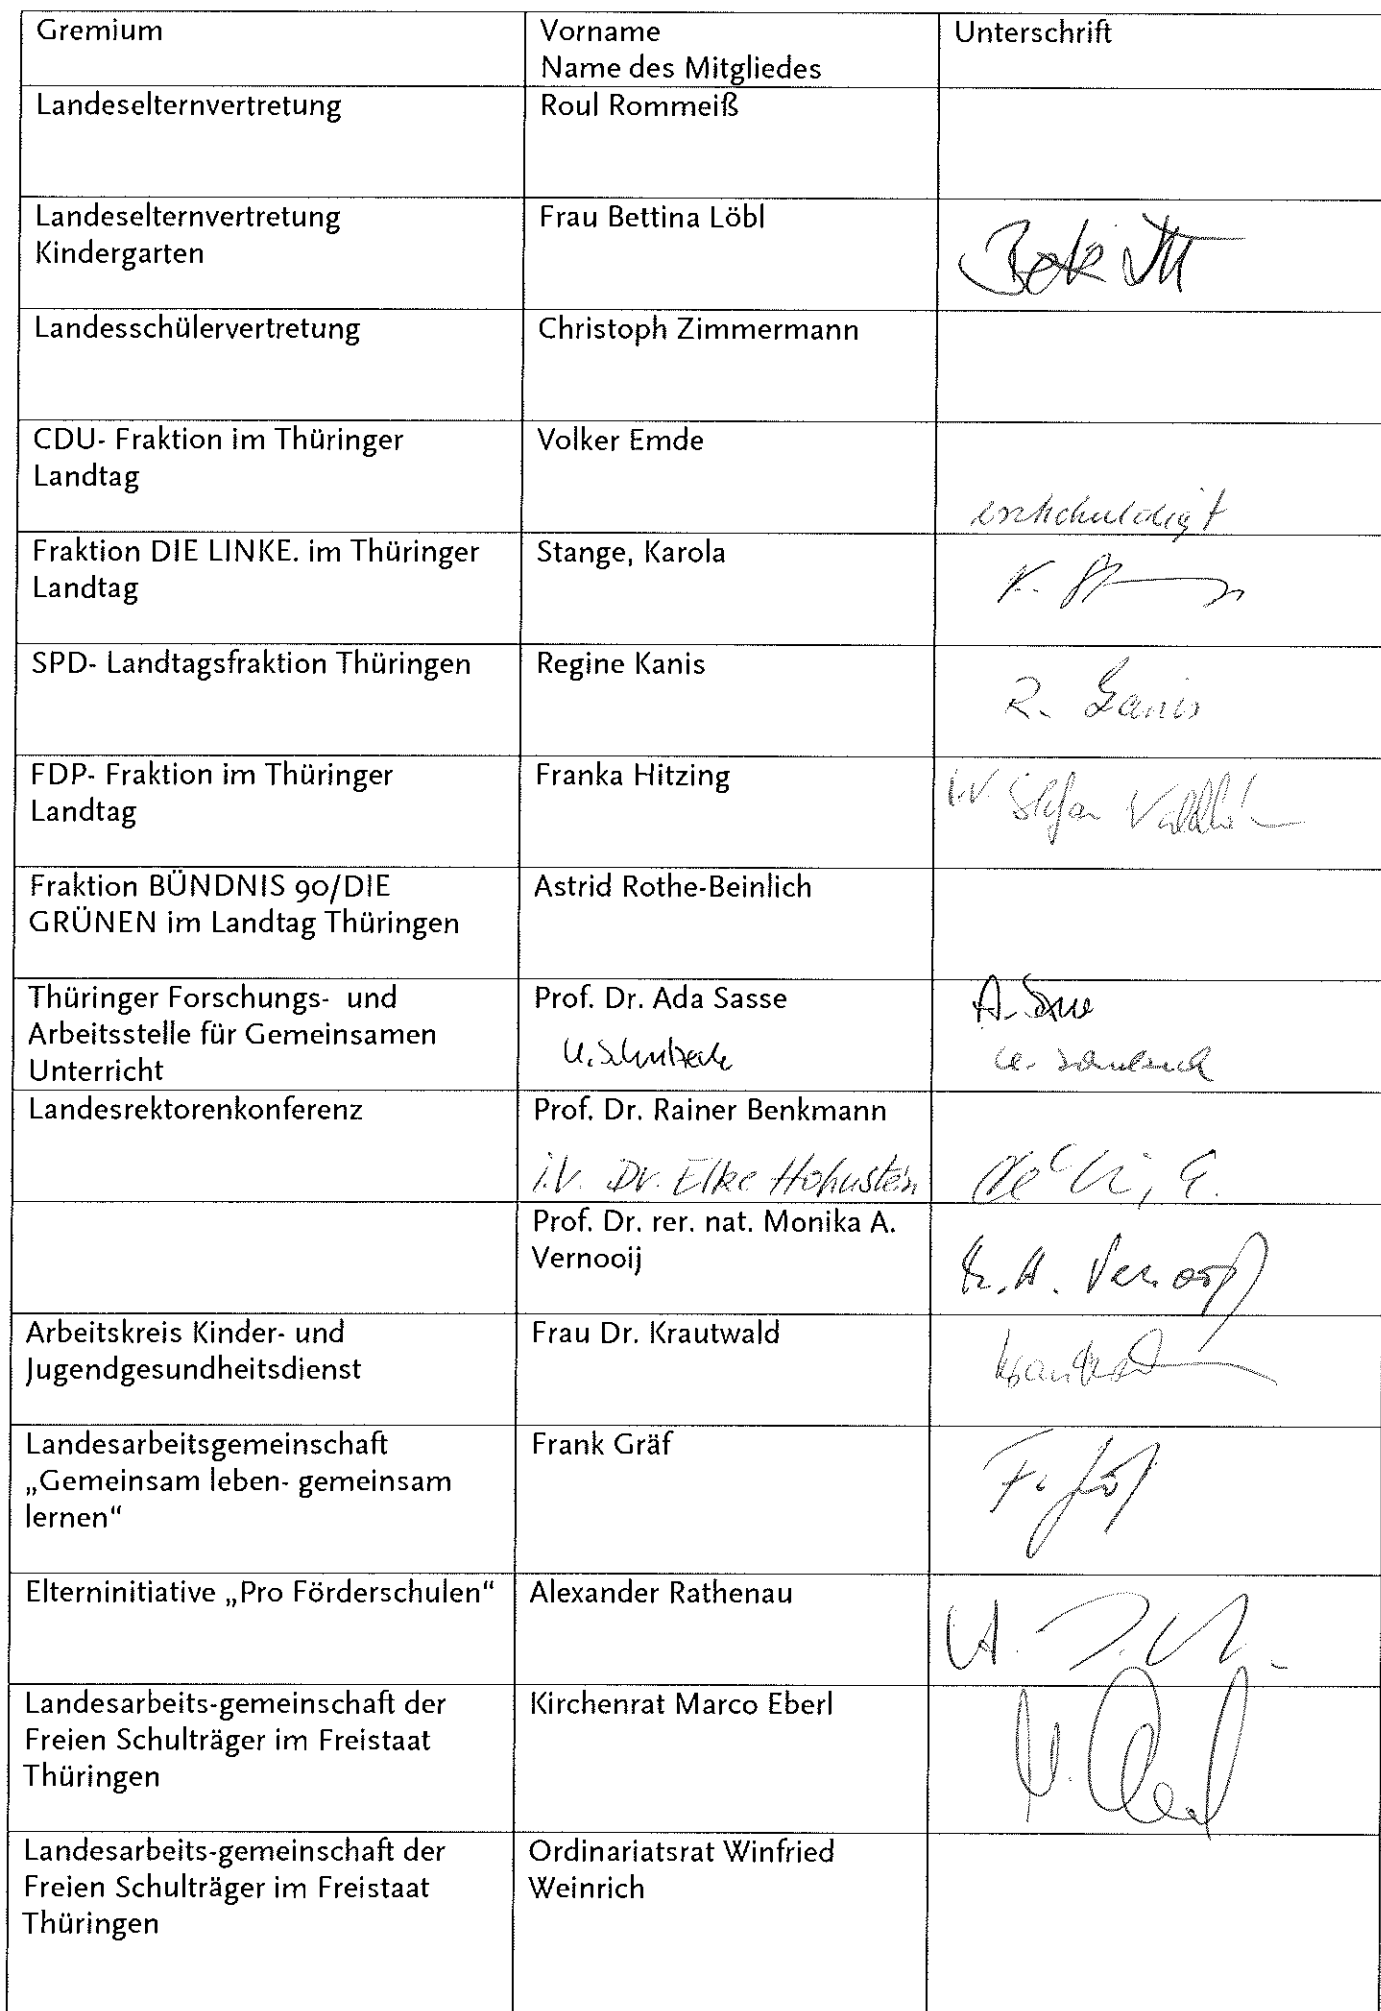 Gremium
Vorname
Name des Mitgliedes
Unterschrift
Landeselternvertretung
Roul Rommeiß
Landeselternvertretung
Kindergarten
Frau Bettina Löbl
Landesschülervertretung
Christoph Zimmermann
CDU- Fraktion im Thüringer
Landtag
Volker Emde
entschuldigt
Fraktion DIE LINKE. im Thüringer
Landtag
Stange, Karola
K. St
SPD- Landtagsfraktion Thüringen
Regine Kanis
R. Kanis
FDP- Fraktion im Thüringer
Landtag
Franka Hitzing
i.V. Stefan
Fraktion BÜNDNIS 90/DIE
GRÜNEN im Landtag Thüringen
Astrid Rothe-Beinlich
Thüringer Forschungs- und
Arbeitsstelle für Gemeinsamen
Unterricht
Prof. Dr. Ada Sasse
A. Sasse
Landesrektorenkonferenz
Prof. Dr. Rainer Benkmann
i.V. Dr. Elke Hohnstein
Prof. Dr. rer. nat. Monika A.
Vernooij
M. A. Vernooij
Arbeitskreis Kinder- und
Jugendgesundheitsdienst
Frau Dr. Krautwald
Krautwald
Landesarbeitsgemeinschaft
„Gemeinsam leben- gemeinsam
lernen“
Frank Gräf
F. Gräf
Elterninitiative „Pro Förderschulen“
Alexander Rathenau
Landesarbeits-gemeinschaft der
Freien Schulträger im Freistaat
Thüringen
Kirchenrat Marco Eberl
Landesarbeits-gemeinschaft der
Freien Schulträger im Freistaat
Thüringen
Ordinariatsrat Winfried
Weinrich